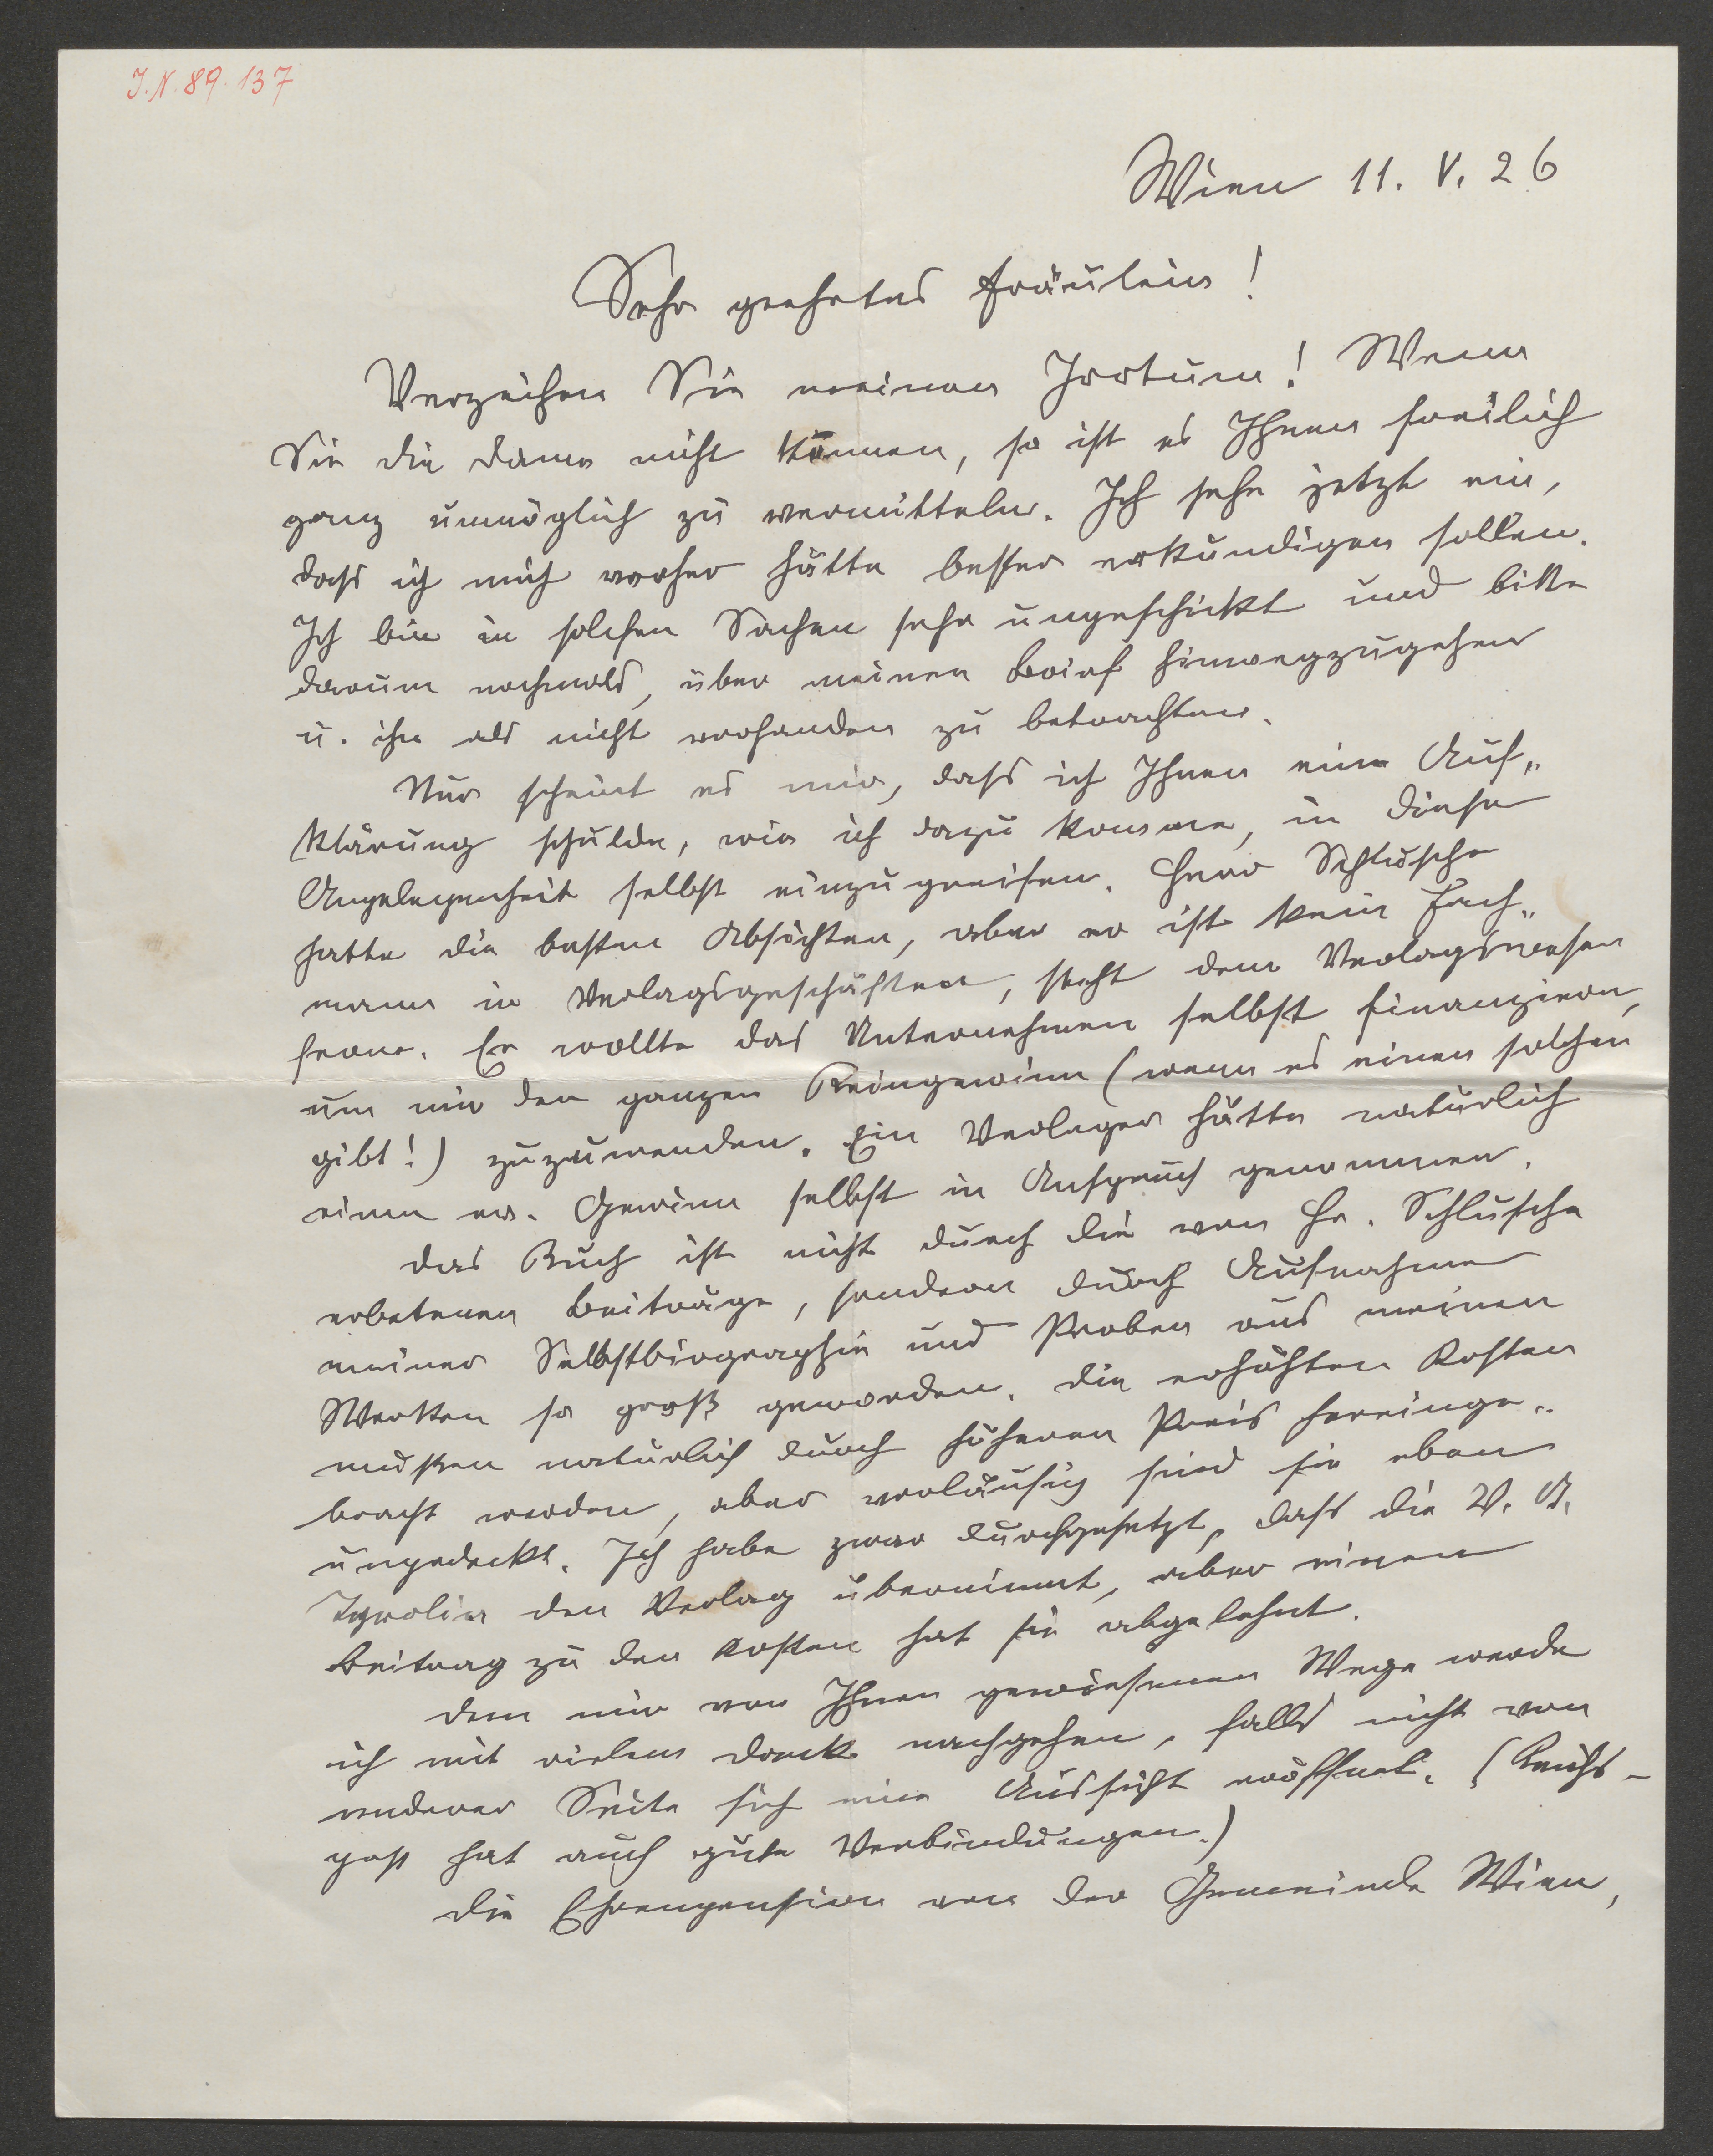 J.N. 89.137
Wien 11. V. 26
Sehr geehrtes Fräulein!
Verzeihen Sie meinen Irrtum! Wenn
Sie die Dame nicht kennen, so ist es Ihnen freilich
ganz unmöglich zu vermitteln. Ich sehe jetzt ein,
dass ich mich vorher hätte besser erkundigen sollen.
Ich bin in solchen Sachen sehr ungeschickt und bitte
darum nochmals, über meinen Brief hinwegzugehen
u. ihn als nicht vorhanden zu betrachten.
Nur scheint es mir, dass ich Ihnen eine Auf„
klärung schulde, wie ich dazu komme, in diese
Angelegenheit selbst einzugreifen. Herr Schlusche
hatte die besten Absichten, aber er ist kein Fach„
mann in Verlagsgeschäften, steht dem Verlagswesen
ferne. Er wollte das Unternehmen selbst finanzieren,
um mir den ganzen Reingewinn (wenn es einen solchen
gibt!) zuzuwenden. Ein Verleger hätte natürlich
einen ev. Gewinn selbst in Anspruch genommen.
Das Buch ist nicht durch die von Hr. Schlusche
erbetenen Beiträge, sondern durch Aufnahme
meiner Selbstbiographie und Proben aus meinen
Werken so groß geworden. Die erhöhten Kosten
müssen natürlich durch höheren Preis hereinge„
bracht werden, aber vorläufig sind sie eben
ungedeckt. Ich habe zwar durchgesetzt, dass die V. A.
Tyrolia den Verlag übernimmt, aber einen
Beitrag zu den Kosten hat sie abgelehnt.
Dem mir von Ihnen gewiesenen Wege werde
ich mit vielem Dank nachgehen, falls nicht von
anderer Seite sich eine Aussicht eröffnet. (Reichs-
post hat auch gute Verbindungen.)
Die Ehrenpension von der Gemeinde Wien,